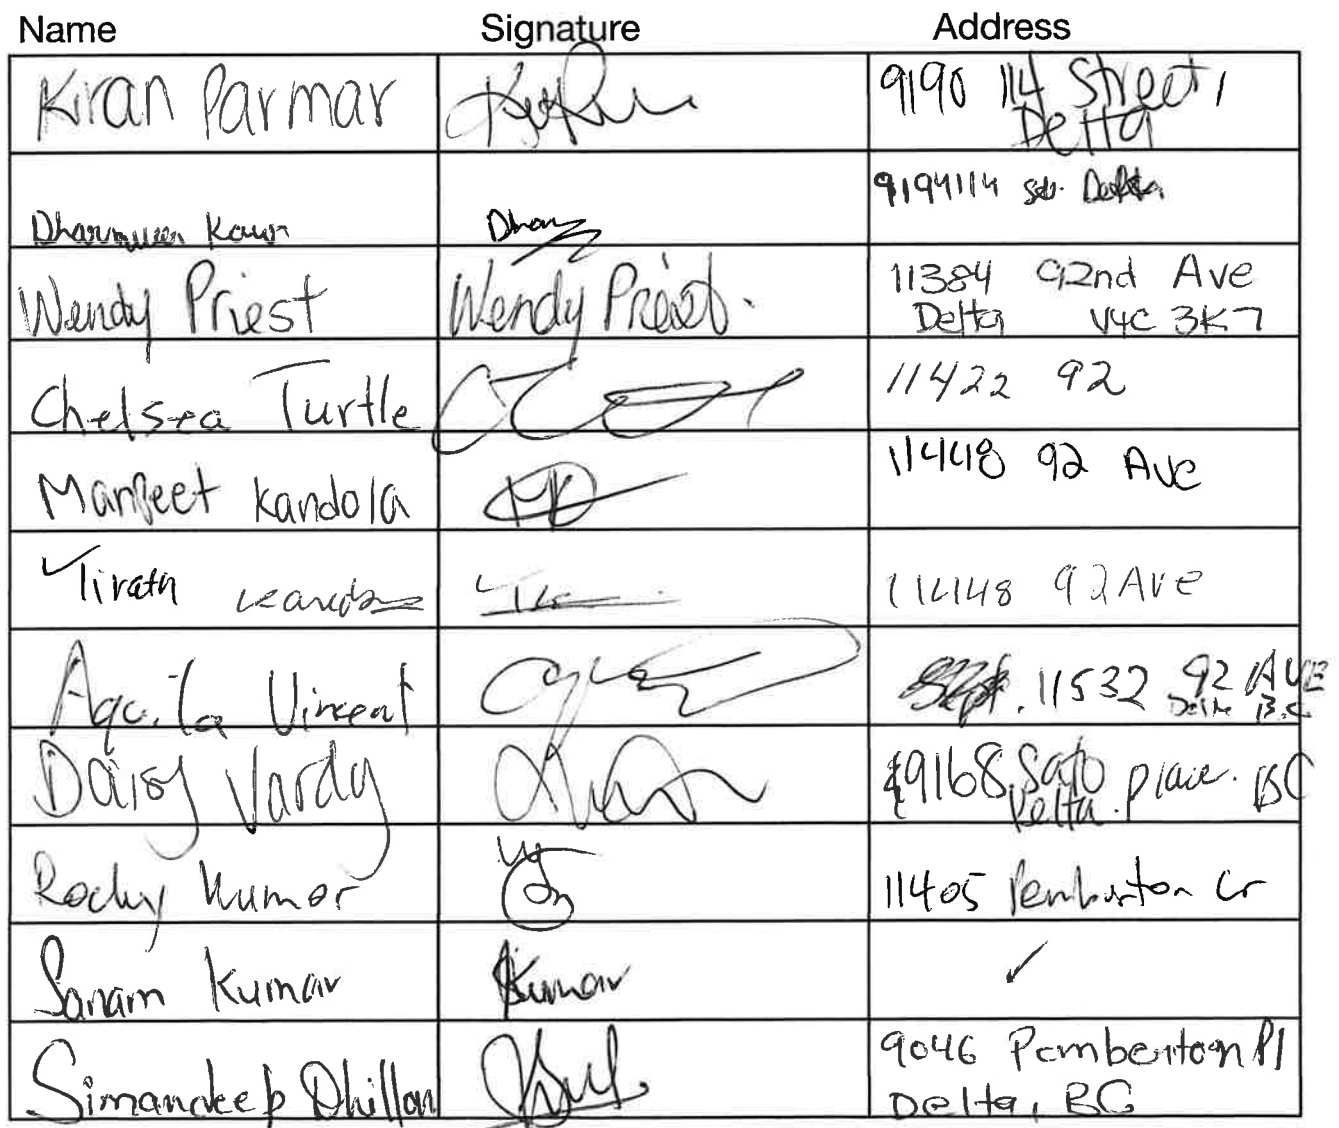 Name Signature Address
Kiran Parmar 9190 114 Street,
Delta
9194114 Delta
Kaur Dham
Wendy Priest Wendy Priest. 11384 92nd Ave
Delta V4C 3K7
Chelsea Turtle 11422 92
Manjeet Kandola MK 11448 92 Ave
Tirath 11448 92 Ave
Aquila Vincent 11532 92 AVE
Delta B.C
Daisy Vardy 9168 Sato place. BC
Delta
Rocky Kumar 11405 Pemberton Cr
Sanam Kumar Kumar ✓
Simandeep Dhillon 9046 Pemberton Pl
Delta, BC